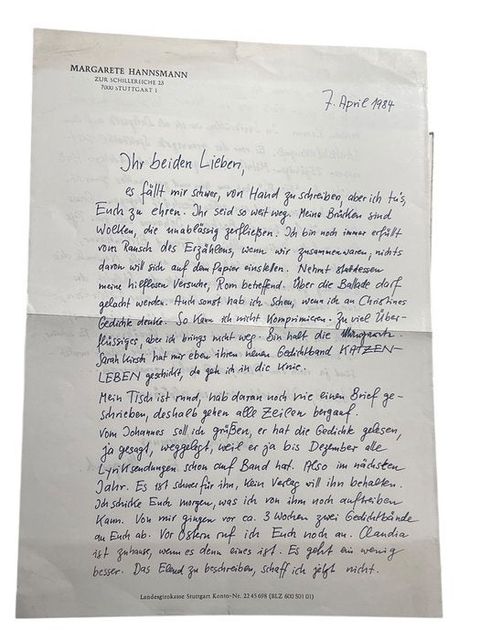 MARGARETE HANNSMANN
ZUR SCHILLEREICHE 23
7000 STUTTGART 1
7. April 1984
Ihr beiden Lieben,
es fällt mir schwer, von Hand zu schreiben, aber ich tu's,
Euch zu ehren. Ihr seid so weit weg. Meine Brücken sind
Wolken, die unablässig zerfließen. Ich bin noch immer erfüllt
vom Rausch des Erzählens, wenn wir zusammenwaren, nichts
davon will sich auf dem Papier einstellen. Nehmt stattdessen
meine hilflosen Versuche, Rom betreffend. Über die Ballade darf
gelacht werden. Auch sonst hab ich Scheu, wenn ich an Christines
Gedichte denke. So kann ich nicht komprimieren. Zu viel Über-
flüssiges, aber ich brings nicht weg. Bin halt die
Sarah Kirsch hat mir eben ihren neuen Gedichtband KATZEN-
LEBEN geschickt, da geh ich in die Knie.
Mein Tisch ist rund, hab daran noch nie einen Brief ge-
schrieben, deshalb gehen alle Zeilen bergauf.
Vom Johannes soll ich grüßen, er hat die Gedichte gelesen,
ja gesagt, weggelegt, weil er ja bis Dezember alle
Lyriksendungen schon auf Band hat. Also im nächsten
Jahr. Es ist schwer für ihn, kein Verlag will ihn behalten.
Ich schicke Euch morgen, was ich von ihm noch auftreiben
kann. Von mir gingen vor ca. 3 Wochen zwei Gedichtbände
an Euch ab. Vor Ostern ruf ich Euch noch an. Claudia
ist zuhause, wenn es denn eines ist. Es geht ein wenig
besser. Das Elend zu beschreiben, schaff ich jetzt nicht.
Landesgirokasse Stuttgart Konto-Nr. 22 45 698 (BLZ 600 501 01)